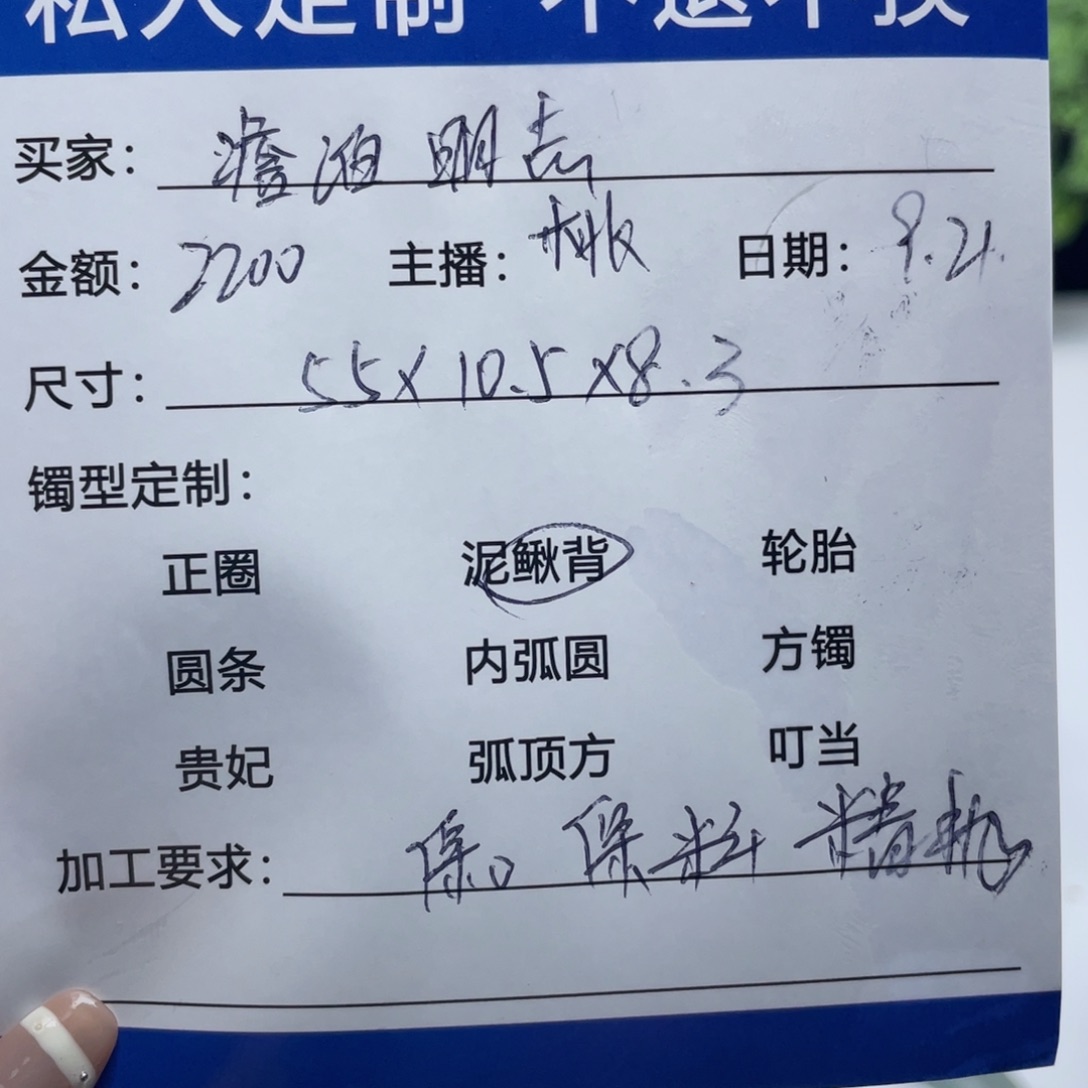 私人定制 不退不换
买家：澹泊明志
金额：2200 主播： 日期：9.21.
尺寸：55×10.5×8.3
镯型定制：
正圈 泥鳅背 轮胎
圆条 内弧圆 方镯
贵妃 弧顶方 叮当
加工要求：保口 保料 精机